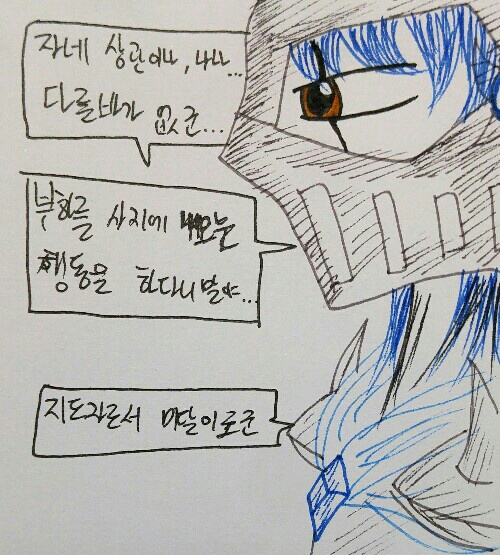 자네 상관이나, 나나...
다를바가 없군...
부하를 사지에 내모는
행동을 하다니 말야...
지도자로서 미달이로군